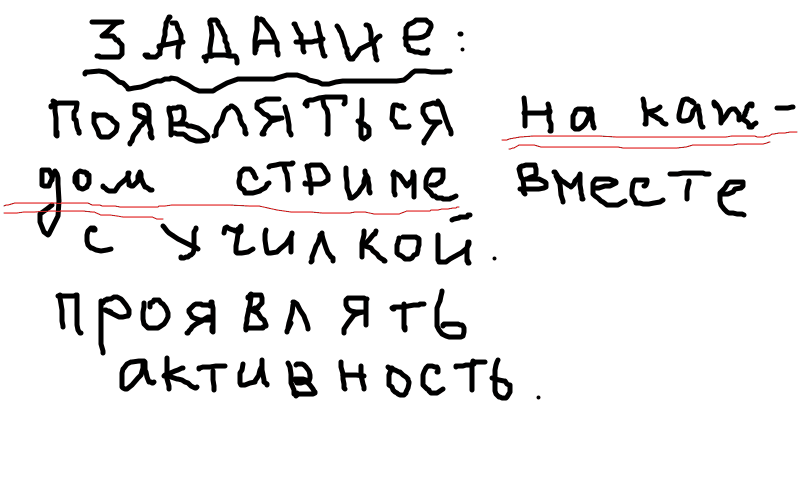 ЗАДАНИЕ:
ПОЯВЛЯТЬСЯ НА КАЖ-
ДОМ СТРИМЕ ВМЕСТЕ
С УЧИЛКОЙ.
ПРОЯВЛЯТЬ
АКТИВНОСТЬ.